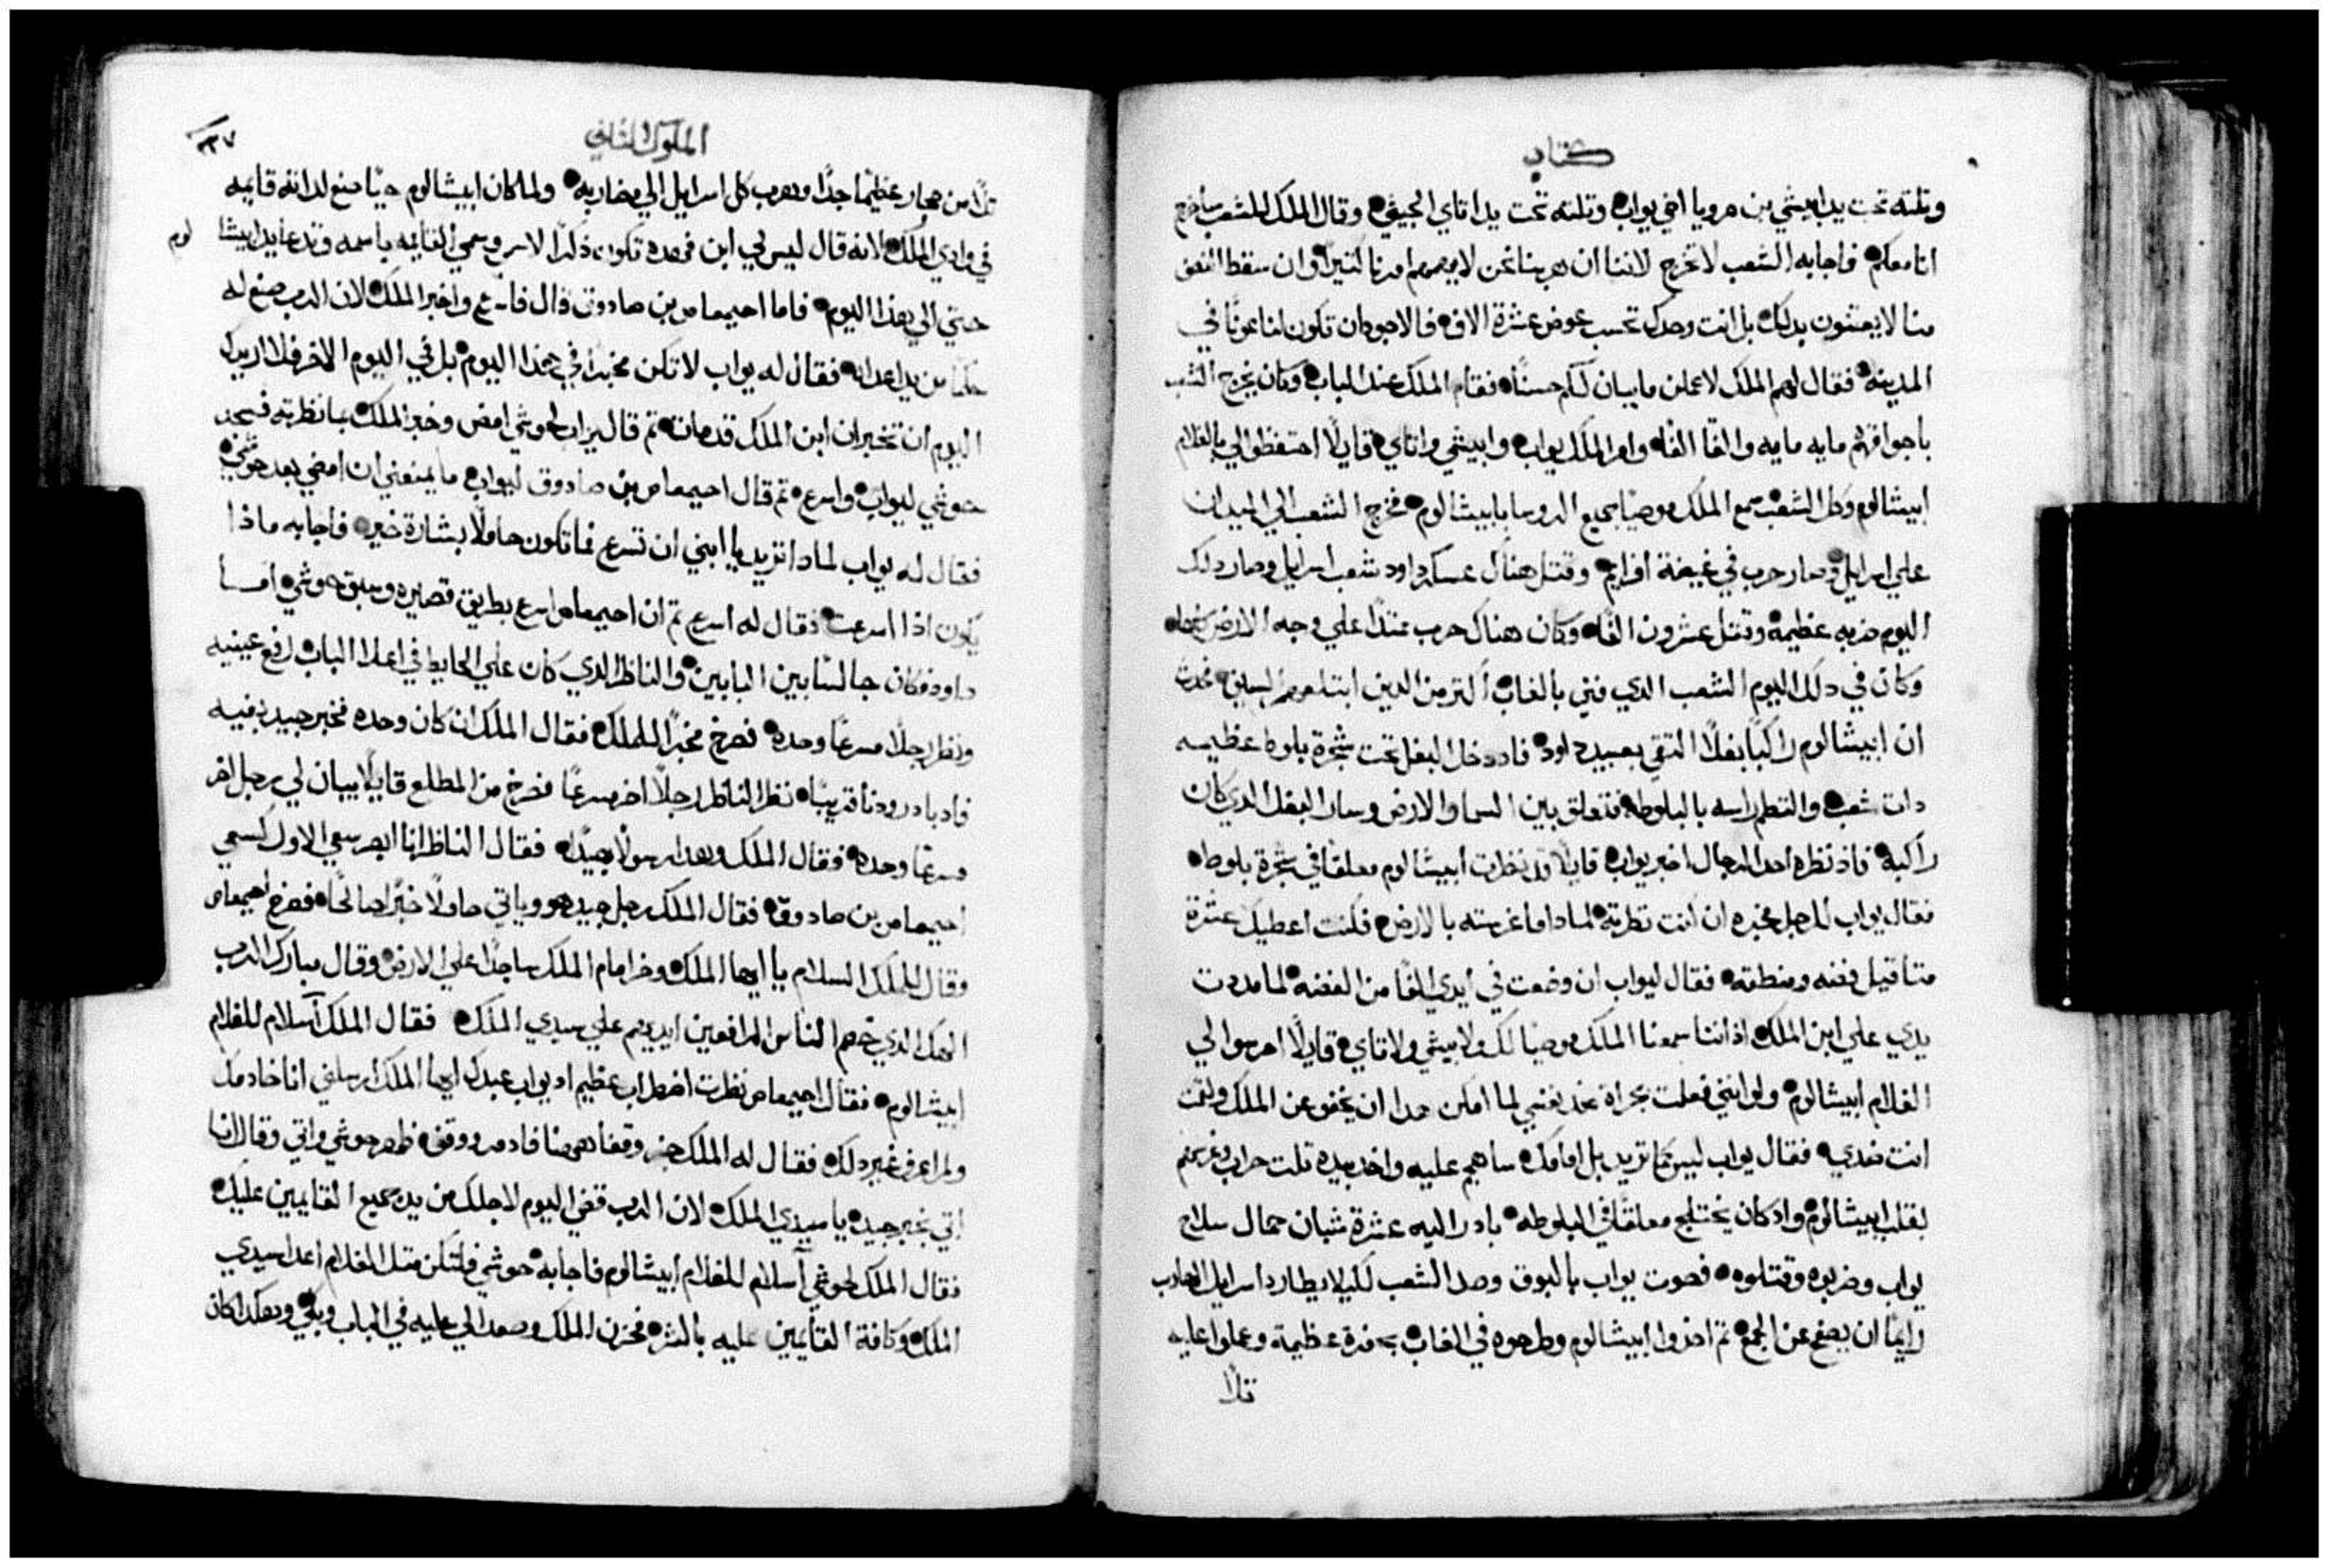 كتاب
وتلته تحت يد ابيشي بن صرويا اخي يواب وتلته تحت يد اتاي الجيثي وقال الملك للشعب ساخرج
انا معكم فاجابه الشعب لا تخرج لاننا ان هربنا نحن لا يهمهم امرنا كتيرا وان سقط النصف
منا لا يعتنون بدلك بل انت وحدك تحسب عوض عشرة الاف فالاجود ان تكون لنا عونا في
المدينه فقال لهم الملك لاعملن ما يبان لكم حسنا فقام الملك عند الباب وكان يخرج الشعب
باجواقهم مايه مايه والفا الفا وامر الملك يواب وابيشي واتاي قايلا احتفظوا لي بالغلام
ابيشالوم وكل الشعب سمع الملك موصيا جميع الروسا بابيشالوم فخرج الشعب الي الميدان
علي اسرايل وصار حرب في غيضة افرايم وقتل هناك عسكر داود شعب اسرايل وصار دلك
اليوم ضربه عظيمة وقتل عشرون الفا وكان هناك حرب ممتدا علي وجه الارض كلها
وكان في دلك اليوم الشعب الدي فني بالغاب اكتر من الدين ابتلعهم السيف فحدث
ان ابيشالوم راكبا بغلا التقي بعبيد داود فاد دخل البغل تحت شجرة بلوط عظيمه
دات شعب والتطم راسه بالبلوطه فتعلق بين السما والارض وسار البغل الدي كان
راكبه فاذ نظره احد الرجال اخبر يواب قايلا قد نظرت ابيشالوم معلقا في شجرة بلوطه
فقال يواب للرجل مخبره ان انت نظرته لمادا ما غرسته بالارض فكنت اعطيك عشرة
متاقيل فضه ومنطقه فقال ليواب ان وضعت في ايدي الفا من الفضه لما مددت
يدي علي ابن الملك اذ اننا سمعنا الملك موصيا لك ولابيشي ولاتاي قايلا احرسوا لي
الغلام ابيشالوم ولو انني فعلت بجراة ضد نفسي لما امكن هدا ان يخفو عن الملك ولقمت
انت ضدي فقال يواب ليس كما تريد بل امامك ساهجم عليه واخد بيده تلت حراب وغرسهم
بقلب ابيشالوم واد كان يختلج معلقا في البلوطه بادر اليه عشرة شبان حمال سلاح
يواب وضربوه وقتلوه فصوت يواب بالبوق وصد الشعب لكيلا يطارد اسرايل الهارب
رايما ان يصفح عن الجمع تم اخذوا ابيشالوم وطرحوه في الغاب بحفرة عظيمة وعملوا عليه
تلا
الملوك التاني
٢٣٧
تلا من حجار عظيما جدا وهرب كل اسرايل الي مضاربه ولما كان ابيشالوم حيا صنع لداته قايمه
في وادي الملك لانه قال ليس لي ابن فهده تكون ذكرا لاسمي وسمي القايمه باسمه وتدعا يد ابيشا لوم
حتي الي هذا اليوم فاما احيمعاص بن صادوق قال فاسرع واخبر الملك لان الرب صنع له
حكما من يد اعدايه فقال له يواب لا تكن مخبرا في هذا اليوم بل في اليوم الاخر فلا اريدك
اليوم ان تخبر ان ابن الملك قد مات تم قال يواب لحوشي امض وخبر الملك بما نظرته فسجد
حوشي ليواب واسرع تم قال احيمعاص بن صادوق ليواب ما يمنعني ان امضي بعد حوشي
فقال له يواب لمادا تريد يا ابني ان تسرع فما تكون حاملا بشارة خير فاجابه ماذا
يكون اذا اسرعت فقال له اسرع تم ان احيمعاص اسرع بطريق قصيره وسبق حوشي اما
داود فكان جالسا بين البابين والناظر الدي كان علي الحايط في اعلا الباب رفع عينيه
ونظر رجلا مسرعا وحده فصرخ مخبرا للملك فقال الملك ان كان وحده فخبر جيد بفيه
فاد بادر ودنا قريبا نظر الناظر رجلا اخر مسرعا فصرخ من المطلع قايلا يبان لي رجل اخر
مسرعا وحده فقال الملك وهدا رسولا جيدا فقال الناظر انا ابصر سعي الاول كسعي
احيمعاص بن صادوق فقال الملك رجل جيد هو وياتي حاملا خبرا صالحا فصرخ احيمعاص
وقال للملك السلام يا ايها الملك وخر امام الملك ساجدا علي الارض وقال مبارك الرب
الهك الدي حصر الناس الرافعين ايديهم علي سيدي الملك فقال الملك اسلام للغلام
ابيشالوم فقال احيمعاص نظرت اضطراب عظيم اد يواب عبدك ايها الملك ارسلني انا خادمك
ولم اعرف غير دلك فقال له الملك جز وقف ههنا فاد مر ووقف ظهر حوشي واتي وقال انا
اتي بخبر جيد يا سيدي الملك لان الرب قضي اليوم لاجلك من يد جميع القايمين عليك
فقال الملك لحوشي اسلام للغلام ابيشالوم فاجابه حوشي فلتكن متل الغلام اعدا سيدي
الملك وكافة القايمين عليه بالشر فحزن الملك وصعد الي عليه في الباب وبكي وهكدا كان